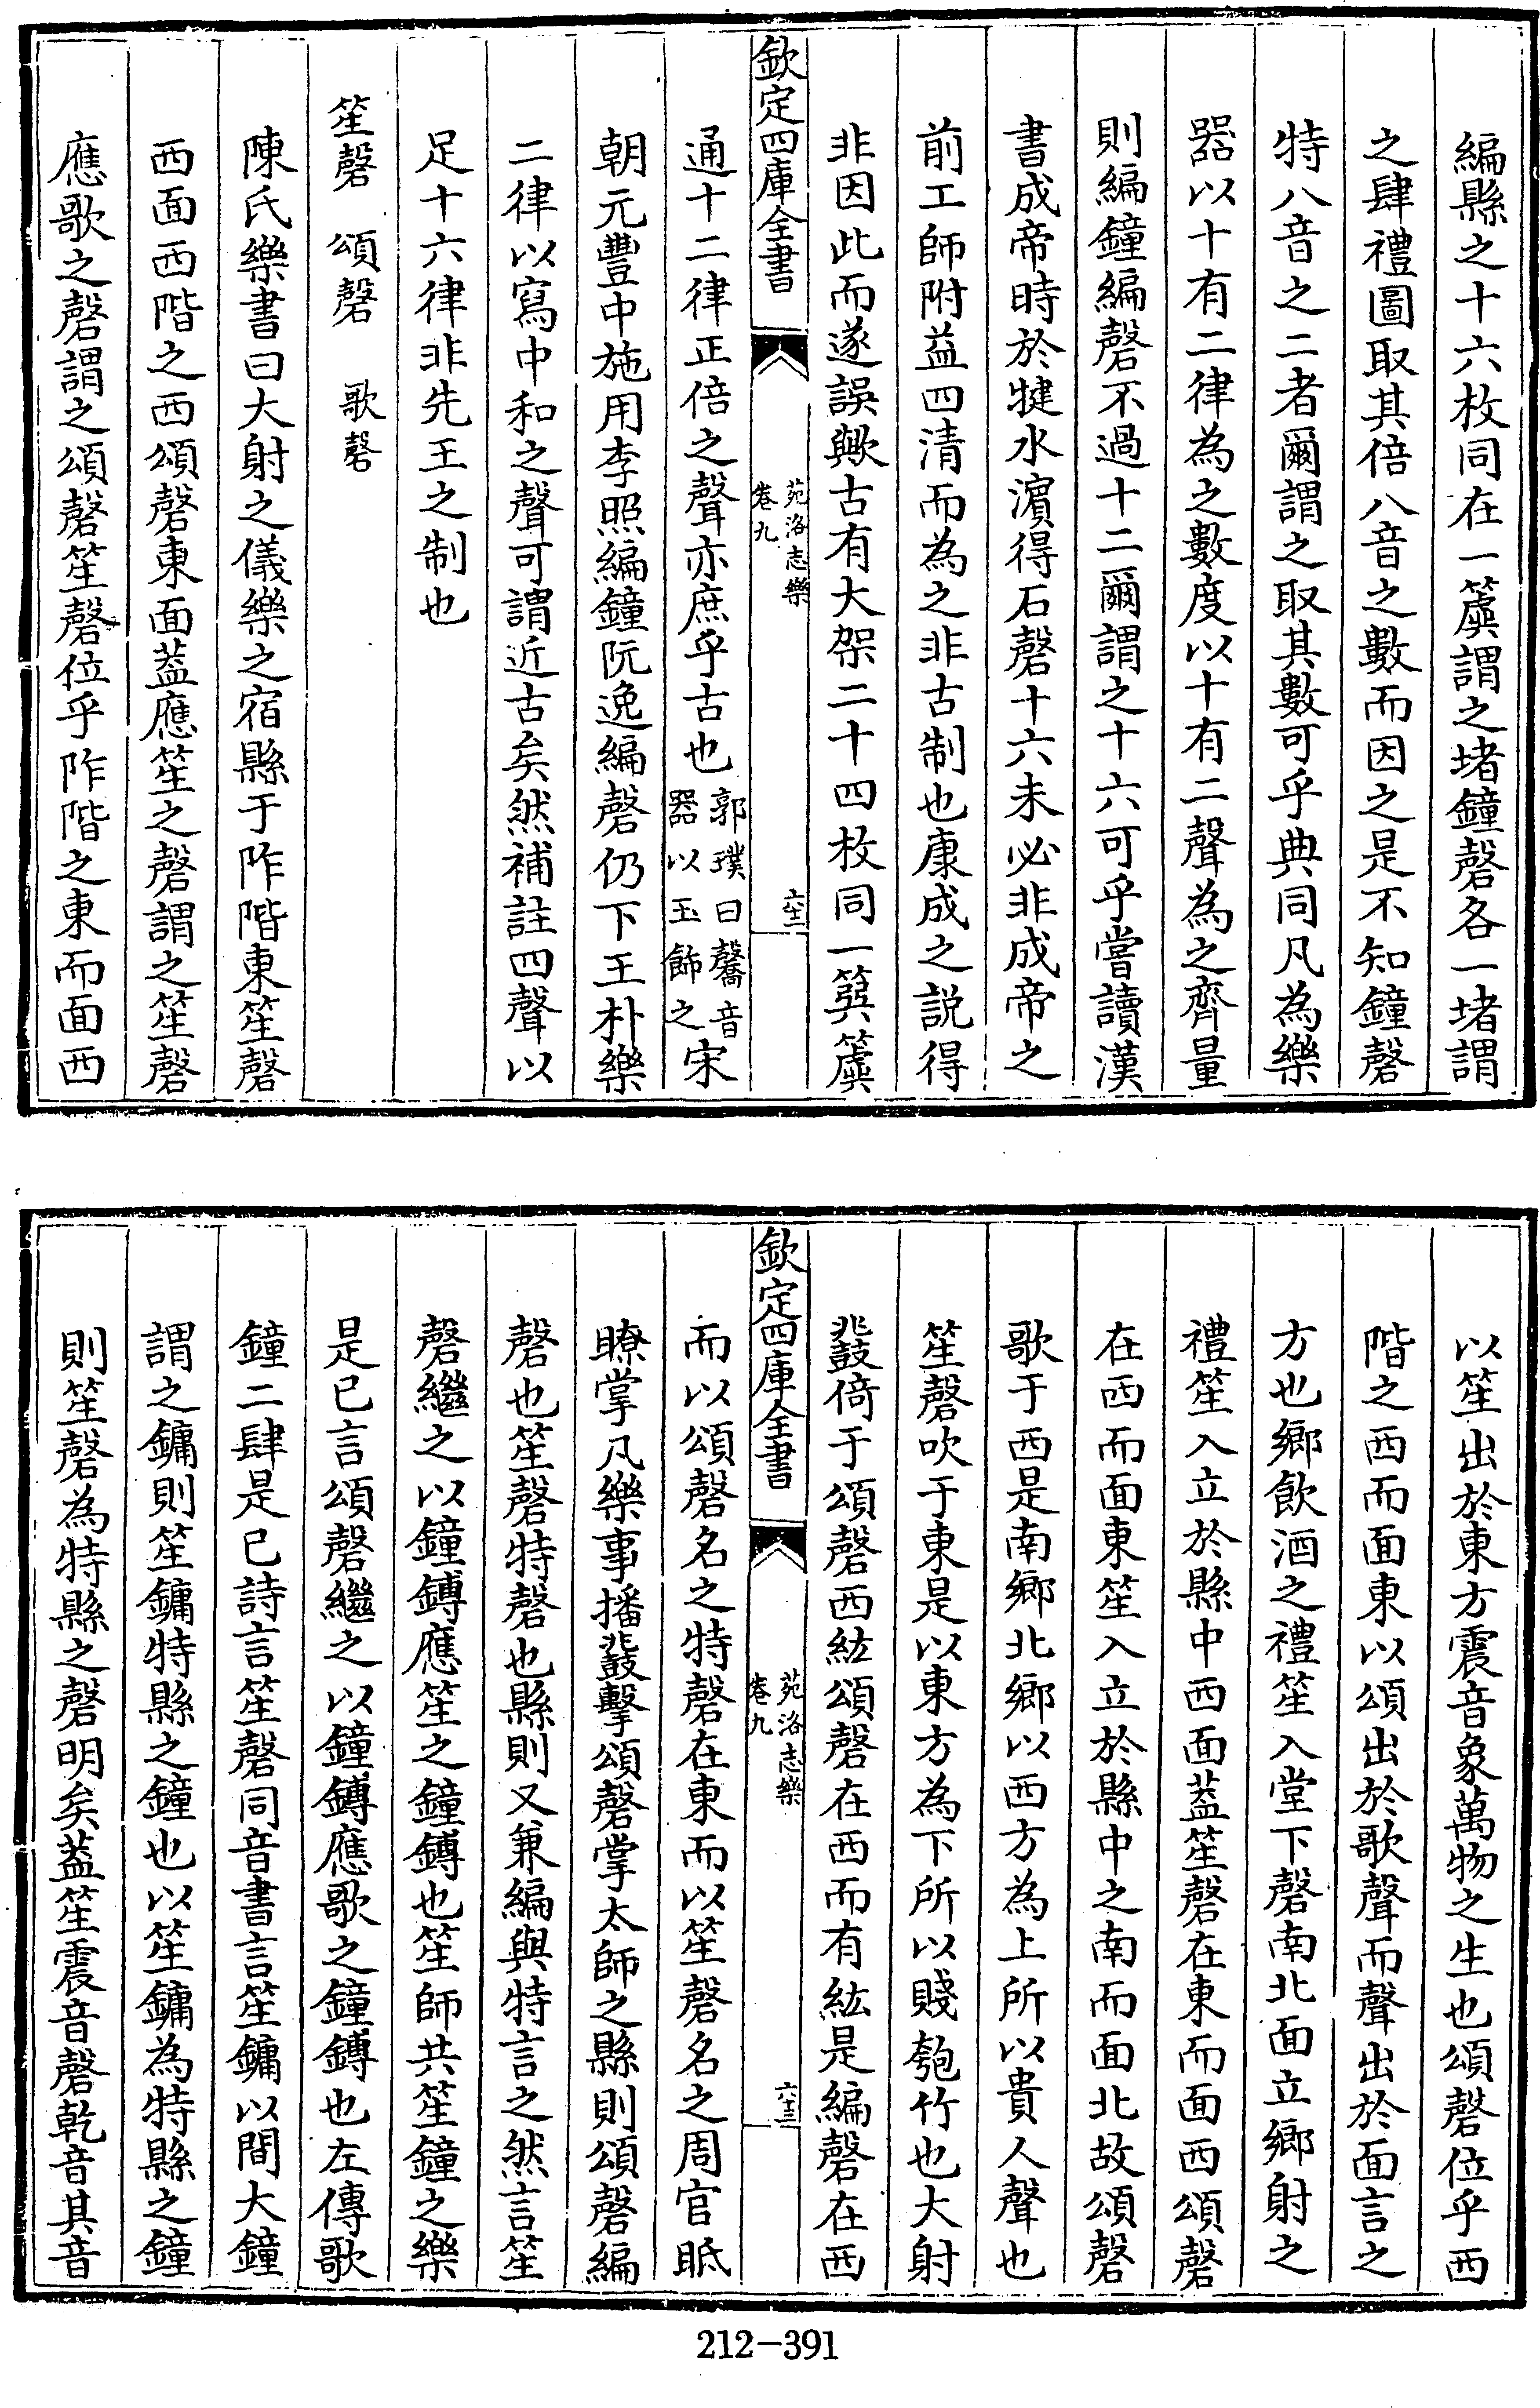 編縣之十六枚同在一簴謂之堵鐘磬各一堵謂
之肆禮圖取其倍八音之數而因之是不知鐘磬
特八音之二者爾謂之取其數可乎典同凡為樂
器以十有二律為之數度以十有二聲為之齊量
則編鐘編磬不過十二爾謂之十六可乎嘗讀漢
書成帝時於犍水濵得石磬十六未必非成帝之
前工師附益四清而為之非古制也康成之説得
非因此而遂誤歟古有大架二十四枚同一簨簴
欽定四庫全書
苑洛志樂
卷九
六十二
通十二律正倍之聲亦庶乎古也郭璞曰毊音器以玉飾之宋
朝元豐中施用李照編鐘阮逸編磬仍下王朴樂
二律以寫中和之聲可謂近古矣然補註四聲以
足十六律非先王之制也
笙磬 頌磬 歌磬
陳氏樂書曰大射之儀樂之宿縣于阼階東笙磬
西面西階之西頌磬東面蓋應笙之磬謂之笙磬
應歌之磬謂之頌磬笙磬位乎阼階之東而面西
以笙出於東方震音象萬物之生也頌磬位乎西
階之西而面東以頌出於歌聲而聲出於面言之
方也鄉飲酒之禮笙入堂下磬南北面立鄉射之
禮笙入立於縣中西面蓋笙磬在東而面西頌磬
在西而面東笙入立於縣中之南而面北故頌磬
歌于西是南鄉北鄉以西方為上所以貴人聲也
笙磬吹于東是以東方為下所以賤匏竹也大射
鼗倚于頌磬西紘頌磬在西而有紘是編磬在西
欽定四庫全書
苑洛志樂
卷九
六十三
而以頌磬名之特磬在東而以笙磬名之周官眡
瞭掌凡樂事播鼗擊頌磬掌太師之縣則頌磬編
磬也笙磬特磬也縣則又兼編與特言之然言笙
磬繼之以鐘鎛應笙之鐘鎛也笙師共笙鐘之樂
是已言頌磬繼之以鐘鎛應歌之鐘鎛也左傳歌
鐘二肆是已詩言笙磬同音書言笙鏞以間大鐘
謂之鏞則笙鏞特縣之鐘也以笙鏞為特縣之鐘
則笙磬為特縣之磬明矣蓋笙震音磬乾音其音
212-391